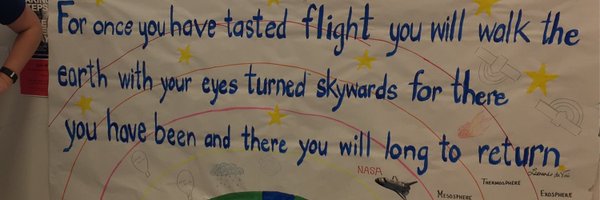 For once you have tasted flight you will walk the
earth with your eyes turned skywards for there
you have been and there you will long to return
NASA
MESOSPHERE
THERMOSPHERE
EXOSPHERE